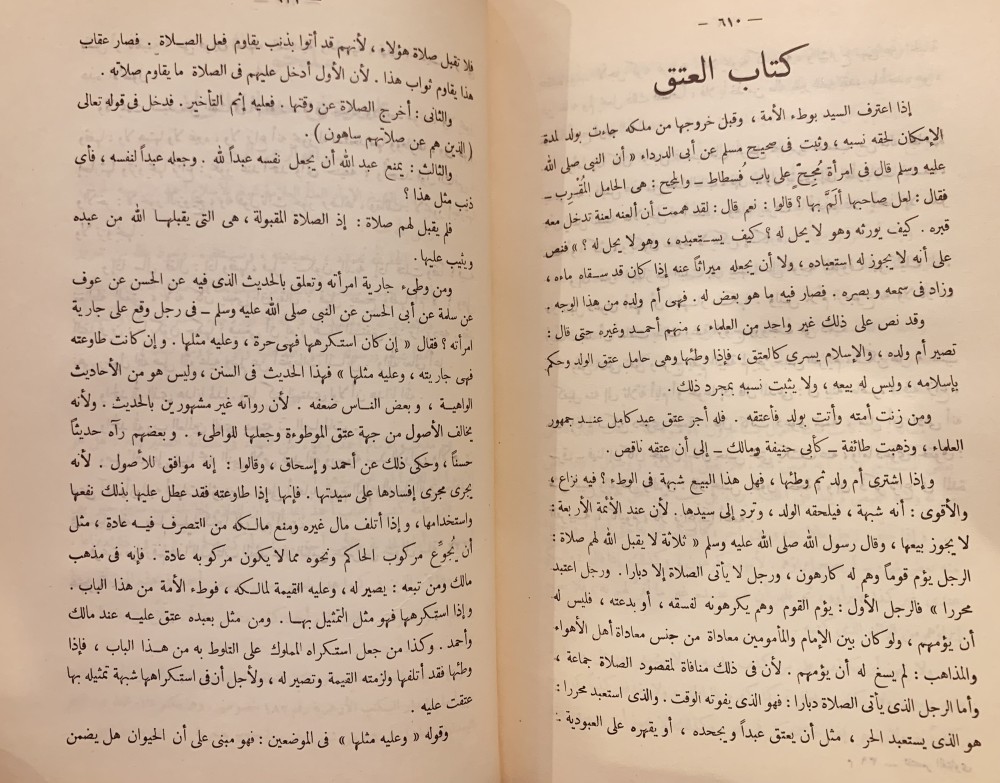 — ٦١٠ —
كتاب العتق
إذا اعترف السيد بوطء الأمة ، وقبل خروجها من ملكه جاءت بولد لمدة
الإمكان لحقه نسبه ، وثبت فى صحيح مسلم عن أبى الدرداء « أن النبي صلى الله
عليه وسلم قال فى امرأة مُجِحٍّ على باب فسطاط ــ والمجح : هى الحامل المُقْرِب ــ
فقال : لعل صاحبها ألَمَّ بها ؟ قالوا : نعم قال : لقد هممت أن ألعنه لعنة تدخل معه
قبره . كيف يورثه وهو لا يحل له ؟ كيف يستعبده ، وهو لا يحل له ؟ » فنص
على أنه لا يجوز له استعباده ، ولا أن يجعله ميراثاً عنه إذا كان قد سقاه ماءه ،
وزاد فى سمعه وبصره . فصار فيه ما هو بعض له . فهى أم ولده من هذا الوجه .
وقد نص على ذلك غير واحد من العلماء ، منهم أحمد وغيره حتى قال :
تصير أم ولده ، والإسلام يسرى كالعتق ، فإذا وطئها وهى حامل عتق الولد وحكم
بإسلامه ، وليس له بيعه ، ولا يثبت نسبه بمجرد ذلك .
ومن زنت أمته وأتت بولد فأعتقه . فله أجر عتق عبد كامل عند جمهور
العلماء ، وذهبت طائفة ــ كأبى حنيفة ومالك ــ إلى أن عتقه ناقص .
وإذا اشترى أم ولد ثم وطئها ، فهل هذا البيع شبهة فى الوطء ؟ فيه نزاع ،
والأقوى : أنه شبهة ، فيلحقه الولد ، وترد إلى سيدها . لأن عند الأئمة الأربعة :
لا يجوز بيعها ، وقال رسول الله صلى الله عليه وسلم « ثلاثة لا يقبل الله لهم صلاة :
الرجل يؤم قوماً وهم له كارهون ، ورجل لا يأتى الصلاة إلا دبارا . ورجل اعتبد
محررا » فالرجل الأول : يؤم القوم وهم يكرهونه لفسقه ، أو بدعته ، فليس له
أن يؤمهم ، ولو كان بين الإمام والمأمومين معاداة من جنس معاداة أهل الأهواء
والمذاهب : لم يسغ له أن يؤمهم . لأن فى ذلك منافاة لمقصود الصلاة جماعة ،
وأما الرجل الذى يأتى الصلاة دبارا : فهو الذى يفوته الوقت . والذى استعبد محررا :
هو الذى يستعبد الحر ، مثل أن يعتق عبداً ويجحده ، أو يقهره على العبودية :
فلا تقبل صلاة هؤلاء ، لأنهم قد أتوا بذنب يقاوم فعل الصلاة . فصار عقاب
هذا يقاوم ثواب هذا . لأن الأول أدخل عليهم فى الصلاة ما يقاوم صلاته .
والثانى : أخرج الصلاة عن وقتها . فعليه إثم التأخير . فدخل فى قوله تعالى
( الذين هم عن صلاتهم ساهون ) .
والثالث : يمنع عبد الله أن يجعل نفسه عبداً لله . وجعله عبداً لنفسه ، فأى
ذنب مثل هذا ؟
فلم يقبل لهم صلاة : إذ الصلاة المقبولة ، هى التى يقبلها الله من عبده
ويثيب عليها .
ومن وطىء جارية امرأته وتعلق بالحديث الذى فيه عن الحسن عن عوف
عن سلمة عن أبى الحسن عن النبي صلى الله عليه وسلم ــ فى رجل وقع على جارية
امرأته ؟ فقال « إن كان استكرهها فهى حرة ، وعليه مثلها . وإن كانت طاوعته
فهى جاريته ، وعليه مثلها » فهذا الحديث فى السنن ، وليس هو من الأحاديث
الواهية ، وبعض الناس ضعفه . لأن رواته غير مشهورين بالحديث . ولأنه
يخالف الأصول من جهة عتق الموطوءة وجعلها للواطىء . وبعضهم رآه حديثاً
حسناً ، وحكى ذلك عن أحمد وإسحاق ، وقالوا : إنه موافق للأصول . لأنه
يجرى مجرى إفسادها على سيدتها . فإنها إذا طاوعته فقد عطل عليها بذلك نفعها
واستخدامها ، وإذا أتلف مال غيره ومنع مالكه من التصرف فيه عادة ، مثل
أن يُجوِّع مركوب الحاكم ونحوه مما لا يكون مركوبه عادة . فإنه فى مذهب
مالك ومن تبعه : يصير له ، وعليه القيمة لمالكه ، فوطء الأمة من هذا الباب .
وإذا استكرهها فهو مثل التمثيل بها . ومن مثل بعبده عتق عليه عند مالك
وأحمد . وكذا من جعل استكراه المملوك على التلوط به من هذا الباب ، فإذا
وطئها فقد أتلفها ولزمته القيمة وتصير له ، ولأجل أن فى استكراهها شبهة تمثيله بها
عتقت عليه .
وقوله « وعليه مثلها » فى الموضعين : فهو مبنى على أن الحيوان هل يضمن